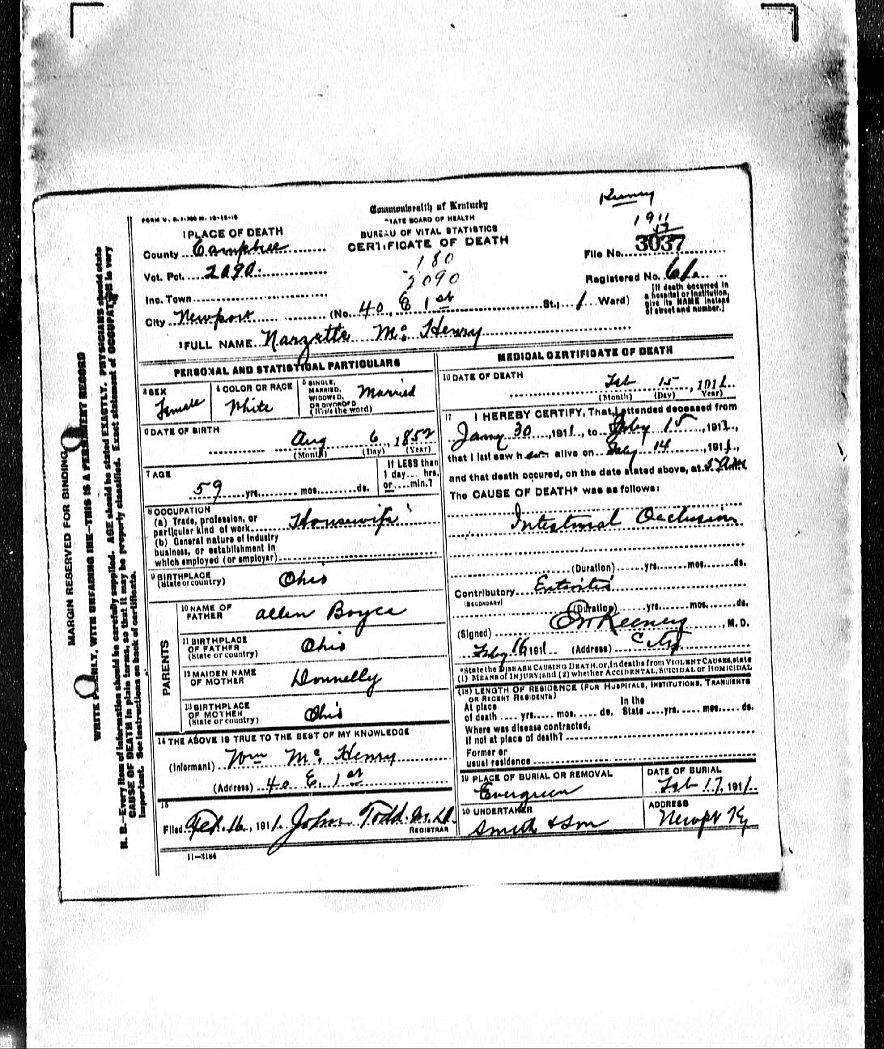 Keeney
FORM V. S. 1-300 M. 12-15-10
Commonwealth of Kentucky
STATE BOARD OF HEALTH
BUREAU OF VITAL STATISTICS
CERTIFICATE OF DEATH
1 PLACE OF DEATH
County Campbell
Vot. Pct. 2090
Inc. Town
City Newport (No. 40 E 1st St.; 1 Ward)
180
2090
1911
File No. 3037
Registered No. 61a
[If death occurred in a hospital or institution, give its NAME instead of street and number.]
2 FULL NAME Narzette Mc Henry
PERSONAL AND STATISTICAL PARTICULARS
3 SEX Female
4 COLOR OR RACE White
5 SINGLE, MARRIED, WIDOWED, OR DIVORCED (Write the word) Married
6 DATE OF BIRTH Aug 6, 1852
(Month) (Day) (Year)
7 AGE 59 yrs. mos. ds.
If LESS than 1 day... hrs. or.... min.?
8 OCCUPATION
(a) Trade, profession, or particular kind of work Housewife
(b) General nature of industry business, or establishment in which employed (or employer)
9 BIRTHPLACE (State or country) Ohio
PARENTS
10 NAME OF FATHER Allen Boyce
11 BIRTHPLACE OF FATHER (State or country) Ohio
12 MAIDEN NAME OF MOTHER Donnelly
13 BIRTHPLACE OF MOTHER (State or country) Ohio
14 THE ABOVE IS TRUE TO THE BEST OF MY KNOWLEDGE
(Informant) Wm Mc Henry
(Address) 40 E. 1st
15
Filed Feb. 16, 1911. John Todd M.D.
REGISTRAR
11-3184
MEDICAL CERTIFICATE OF DEATH
16 DATE OF DEATH Feb 15, 1911
(Month) (Day) Year)
17 I HEREBY CERTIFY, That I attended deceased from
Jany 30, 1911, to Feby 15, 1911,
that I last saw her alive on Feby 14, 1911,
and that death occured, on the date stated above, at 5 AM
The CAUSE OF DEATH* was as follows:
Intestinal Occlusion
(Duration) yrs. mos. ds.
Contributory Enteritis
(SECONDARY)
(Duration) yrs. mos. ds.
(Signed) Keeney, M. D.
Feby 16 1911 (Address) City
*State the DISEASE CAUSING DEATH, or, in deaths from VIOLENT CAUSES, state (1) MEANS OF INJURY; and (2) whether ACCIDENTAL, SUICIDAL OR HOMICIDAL
(18) LENGTH OF RESIDENCE (FOR HOSPITALS, INSTITUTIONS, TRANSIENTS OR RECENT RESIDENTS)
At place of death yrs. mos. ds. In the State yrs. mos. ds.
Where was disease contracted, if not at place of death?
Former or usual residence
19 PLACE OF BURIAL OR REMOVAL Evergreen
DATE OF BURIAL Feb 17, 1911.
20 UNDERTAKER Smith & Son
ADDRESS Newpt Ky
MARGIN RESERVED FOR BINDING
WRITE PLAINLY, WITH UNFADING INK—THIS IS A PERMANENT RECORD
N. B.—Every item of information should be carefully supplied. AGE should be stated EXACTLY. PHYSICIANS should state
CAUSE OF DEATH in plain terms, so that it may be properly classified. Exact statement of OCCUPATION is very
important. See instructions on back of certificate.